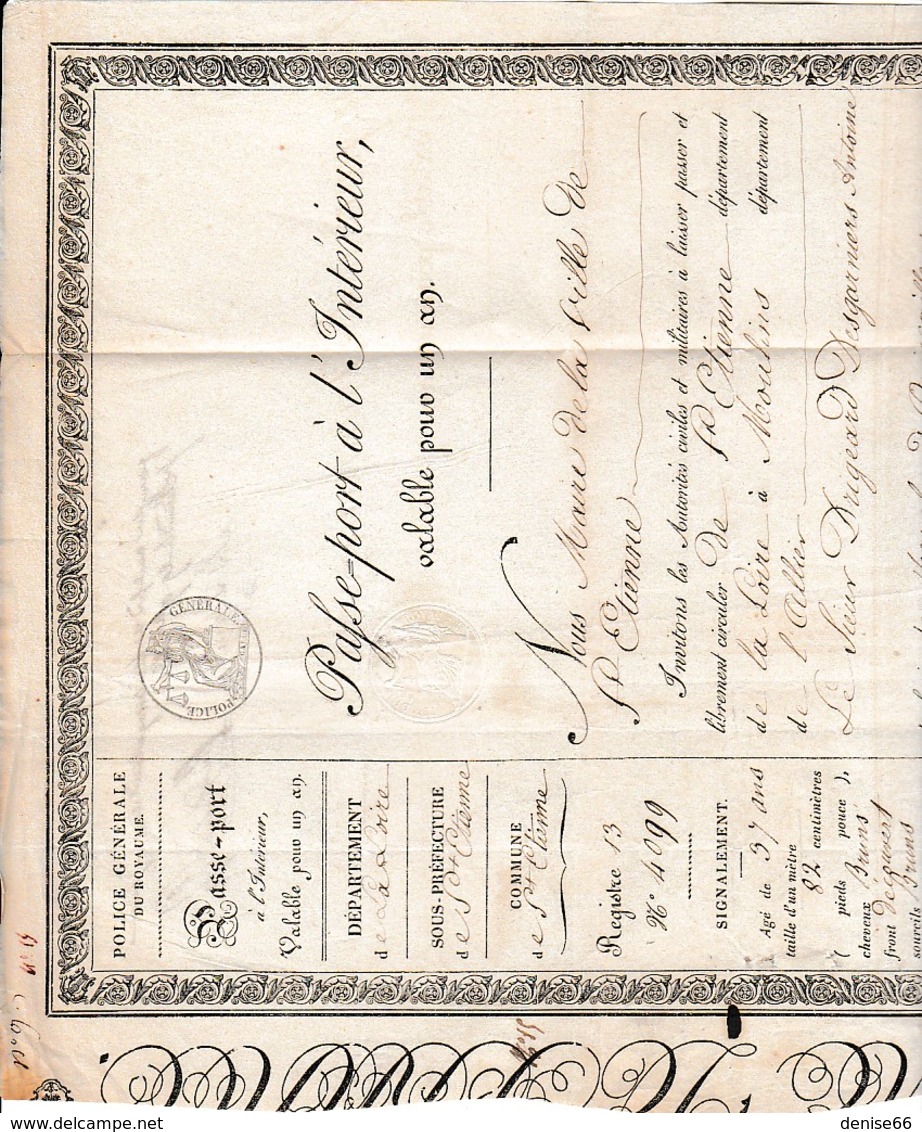 POLICE GÉNÉRALE
DU ROYAUME.
Passe-port
à l'Intérieur,
Valable pour un an.
DÉPARTEMENT
de La Loire
SOUS-PRÉFECTURE
de St Etienne
COMMUNE
de St Etienne
Registre 13
N.º 4099
SIGNALEMENT.
Agé de 37 ans
taille d'un mètre
82 centimètres
( pieds pouce ),
cheveux Bruns
front découvert
sourcils Bruns
POLICE GÉNÉRALE
Passe-port à l'Intérieur,
valable pour un an.
Nous Maire de la Ville de
St Etienne
Invitons les Autorités civiles et militaires à laisser passer et
librement circuler de St Etienne département
de la Loire à Moulins département
de l'Allier
Le Sieur Drigeard Desgarniers Antoine
denise66